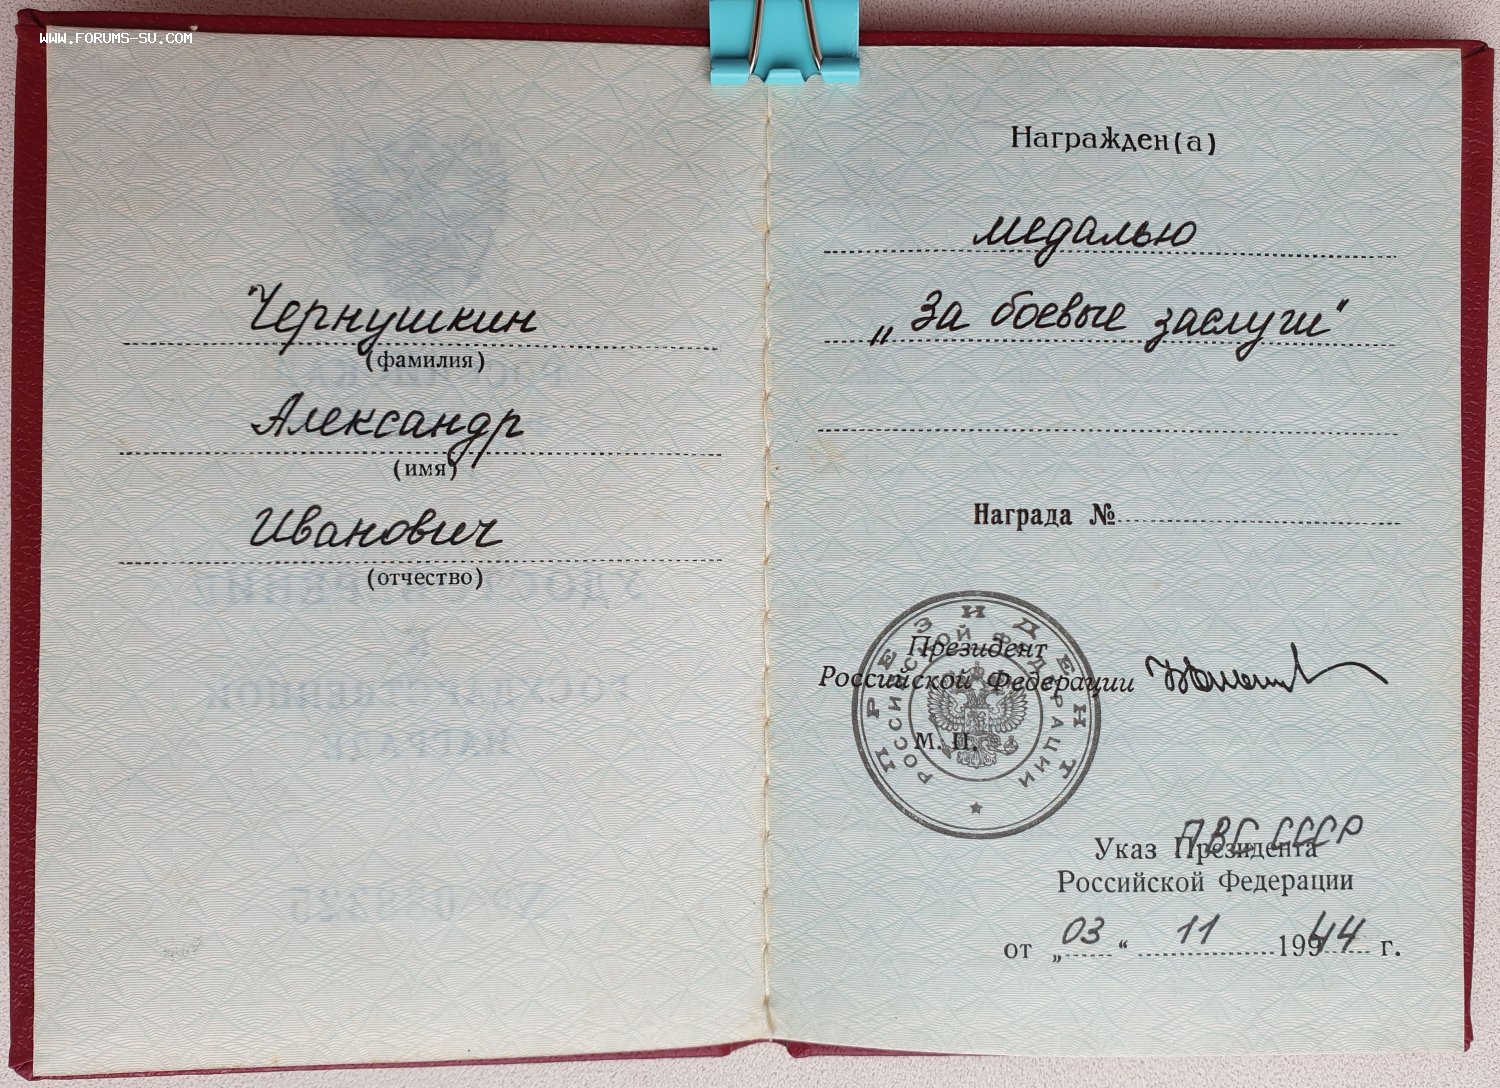 WWW.FORUMS-SU.COM
Чернушкин
(фамилия)
Александр
(имя)
Иванович
(отчество)
Награжден(а)
медалью
„За боевые заслуги"
Награда №
ПРЕЗИДЕНТ
РОССИЙСКОЙ ФЕДЕРАЦИИ
Президент
Российской Федерации
М. П.
ПВС СССР
Указ Президента
Российской Федерации
от „03“ 11 1944 г.